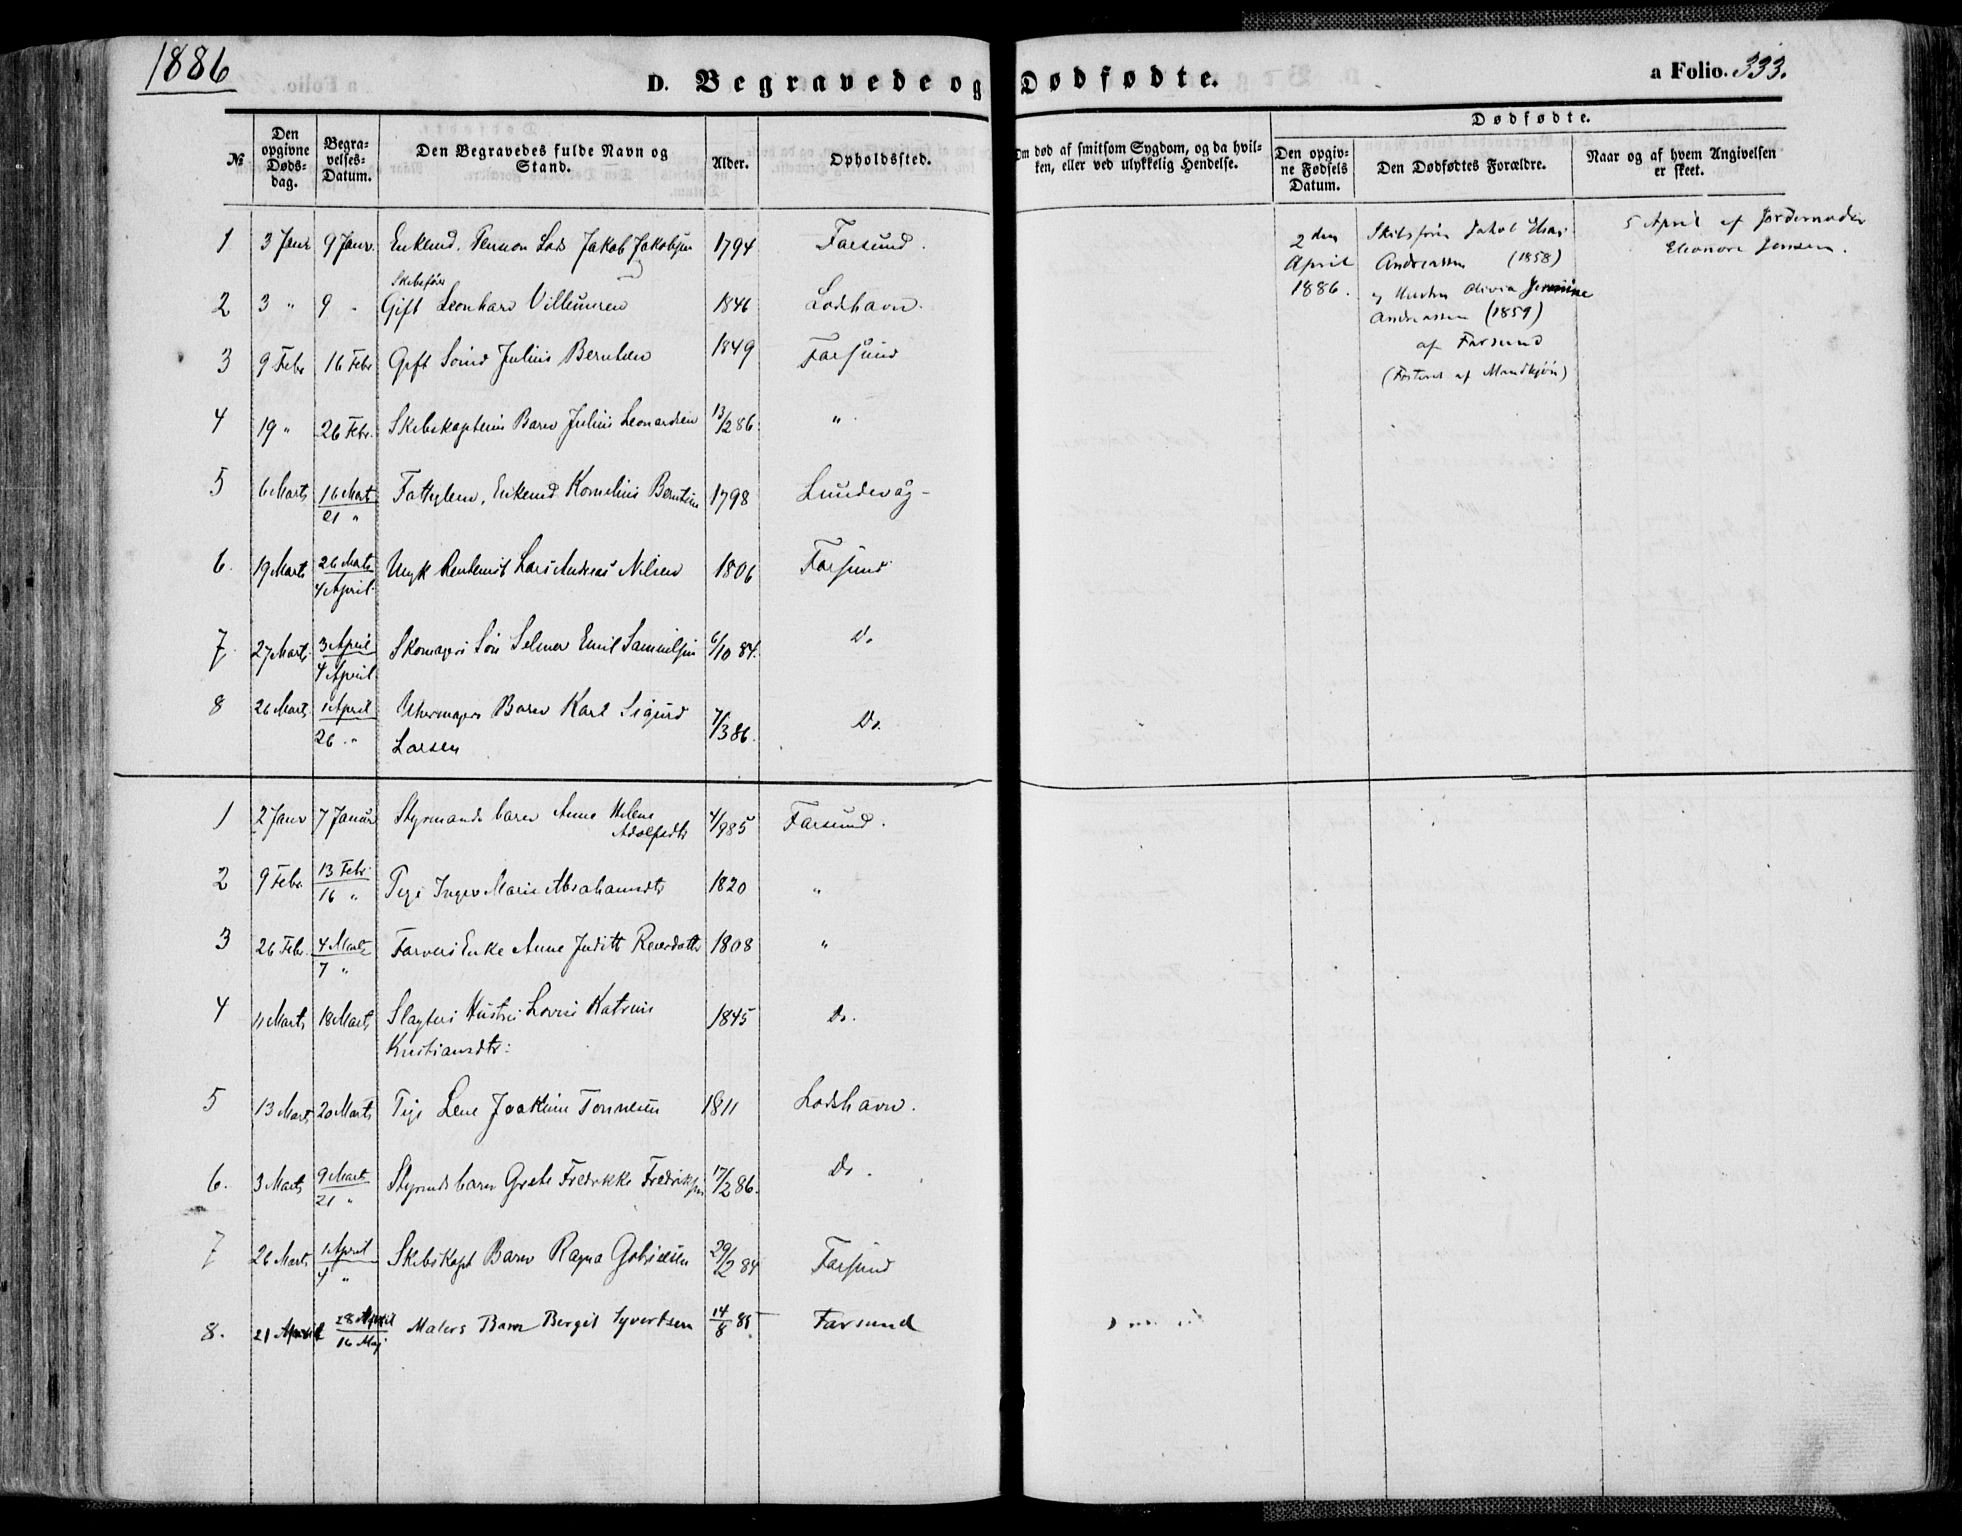 1886
D. Begravede og Dødfødte.
a Folio. 333.
№
Den opgivne Døds-dag.
Begra-velses-Datum.
Den Begravedes fulde Navn og Stand.
Alder.
Opholdssted.
Om død af smitsom Sygdom, og da hvil-ken, eller ved ulykkelig Hendelse.
Dødfødte.
Den opgiv-ne Fødsels Datum.
Den Dødfødtes Forældre.
Naar og af hvem Angivelsen er skeet.
1 3 Janr 9 Janr. Enkemd. Lods Jakob Jakobsen 1794 Farsund.
Skibsfører
2 3 " 9 " Gift Leonhard Villumsen 1846 Lodshavn.
3 9 Febr 16 Febr Gift Smed Julius Berntsen 1849 Farsund
4 19 " 26 Febr. Skibskapteins Barn Julius Leonardsen 13/2 86. "
5 6 Marts 16 Mart 21 " Fattiglem, Enkemd Kornelius Berntsen 1798 Lundevåg
6. 19 Marts 26 Marts 4 April Ungk Lars Andreas Nilsen 1806 Farsund
7. 27 Marts 3 April 4 April Skomagers Søn Selmer Emil Samuelsen 6/10 84. Do
8 26 Marts 1 April 26 " Uhrmagers Barn Karl Sigurd Larsen 7/3 86. Do.
2 den April 1886.
Skibsfører Jakob Elias
Andreassen (1858)
og Hustru Olivia Jensine
Andreassen (1859)
af Farsund
(Fosteret af Mandkjøn)
5 April af Jordemoder
Eleonore Jensen.
1 2 Janr 7 Januar Styrmands barn Anne Helene Adolfsdtr 4/9 85 Farsund.
2 9 Febr. 13 Febr. 16 " Pige Inger Marie Abrahamsdtr 1820 "
3 26 Febr. 4 Marts 7 " Farvers Enke Anne Judith 1808 "
4 11 Marts 18 Marts Slagters Hustru Lovise Katrine
Kristiansdtr: 1845 Do.
5 13 Mart 20 Marts Pige Lene Joakime Tønnesen 1811 Lodshavn.
6. 3 Marts 9 Marts 21 " Styrmds barn Grete Fredrikke Fredriksen 17/2 86. Do.
7 26 Marts 1 April 4 " Skibskapt Barn Ragna Gabrielsen 29/2 84 Farsund
8. 21 April 28 April 16 Maj Malers Barn Bergit Syvertsen 14/8 85. Farsund